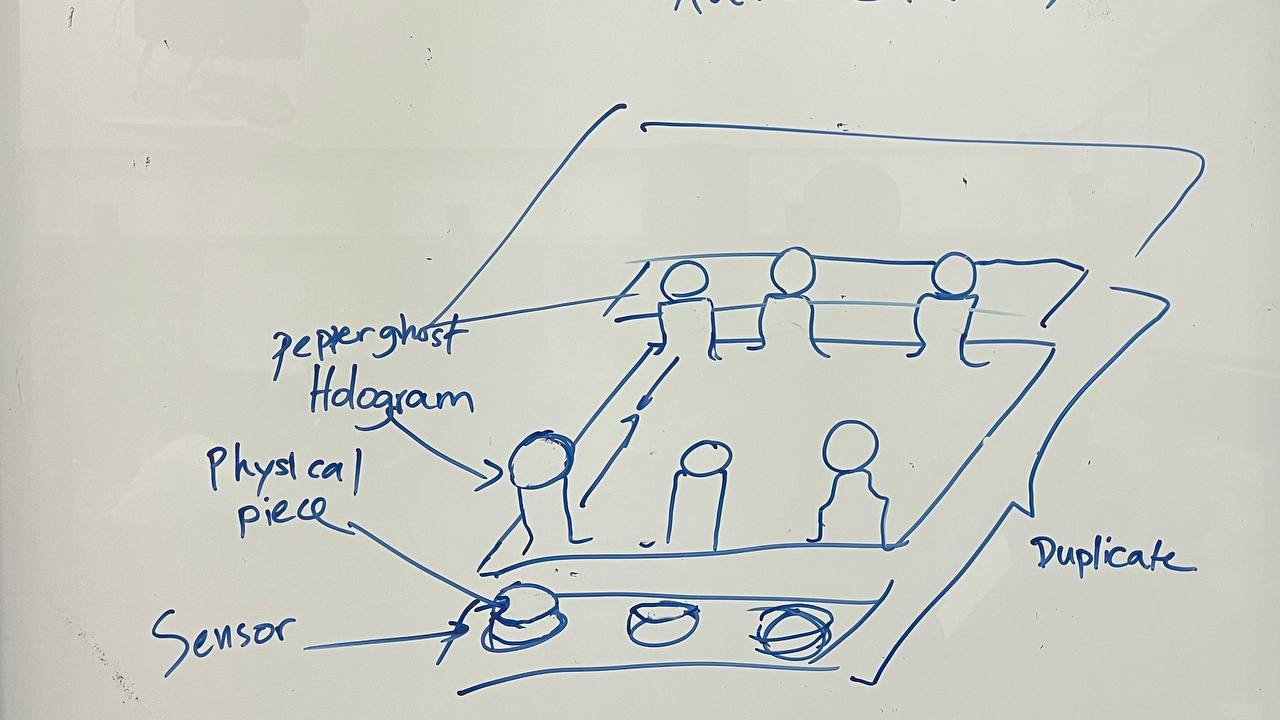 Pepperghost
Hologram
Physical
piece
Sensor
Duplicate